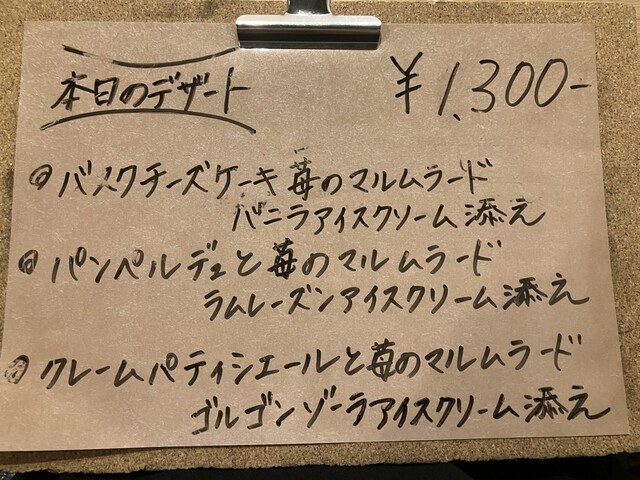 本日のデザート
¥1,300-
◎バスクチーズケーキ 苺のマルムラード
バニラアイスクリーム添え
◎パンペルデュと苺のマルムラード
ラムレーズンアイスクリーム添え
◎クレームパティシエールと苺のマルムラード
ゴルゴンゾーラアイスクリーム添え